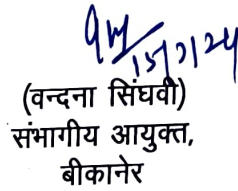 15/7/24
(वन्दना सिंघवी)
संभागीय आयुक्त,
बीकानेर